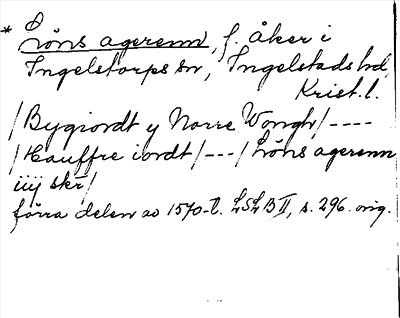 * Löns agerenn, f. åker i
Ingelstorps sn, Ingelstads hd,
Krist. l.
/Bygiordt y Norre Wongh/----
/Hauffre iordt/---/Löns agerenn
iiij skr/
förra delen av 1570-t. LSLB II, s. 296. orig.